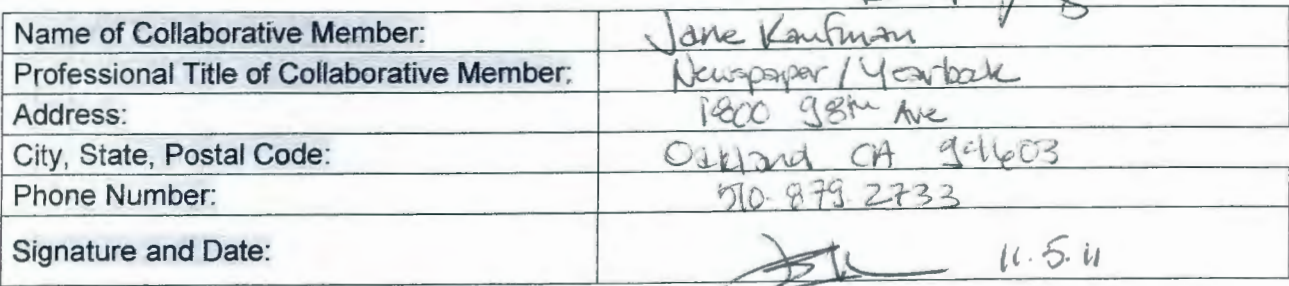 Name of Collaborative Member: Jane Kaufman
Professional Title of Collaborative Member: Newspaper / Yearbook
Address: 1800 98th Ave
City, State, Postal Code: Oakland CA 94603
Phone Number: 510. 879. 2733
Signature and Date: 11. 5. 11